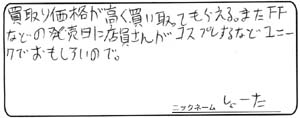 買取り価格が高く買い取ってもらえる。またFF
などの発売日に店員さんがコスプレするなどユニー
クでおもしろいので。
ニックネーム しーた